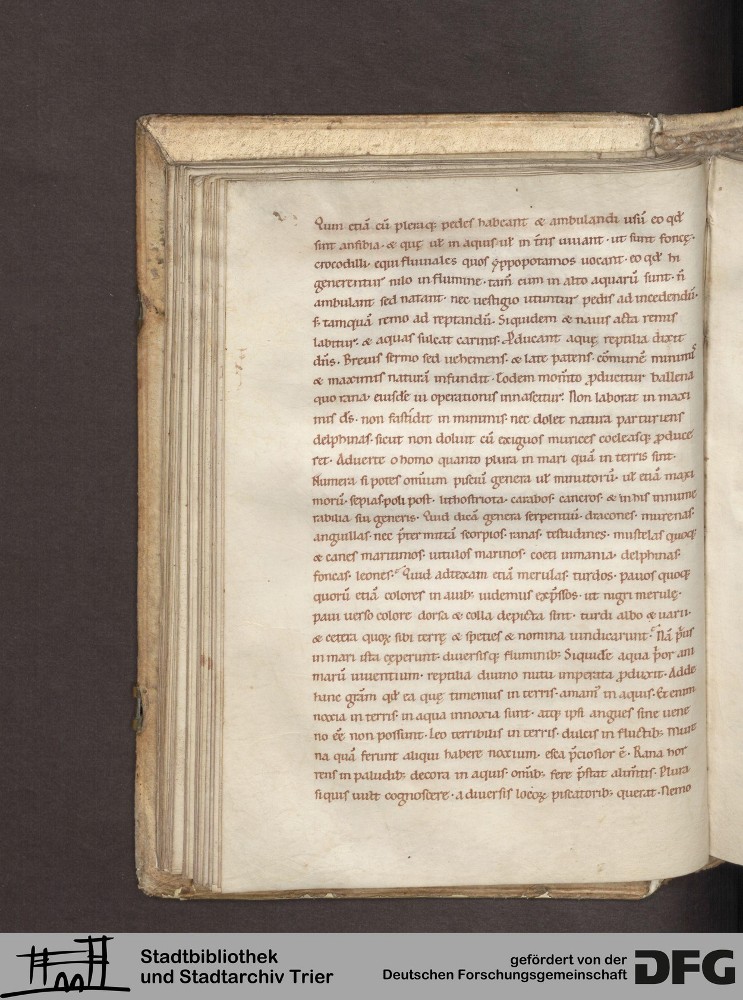 Quin etiā cū pleriq; pedes habeant & ambulandi usū eo qđ
sint anfibia. & quę uł in aquis uł in t̄ris uiuant. ut sunt focę.
crocodilli. equi fluuiales quos yppopotamos uocant. eo qđ hi
generentur nilo in flumine. tam̄ cum in alto aquarū sunt. n̄
ambulant sed natant. nec uestigio utuntur pedis ad incedendū.
s; tamquā remo ad reptandū. Siquidem & nauis acta remis
labitur. & aquas sulcat carinis. Producant aquę reptilia dixit
dn̄s. Breuis sermo sed uehemens. & late patens. cōmunē minimis
& maximis naturā infundit. Eodem mom̄to ꝓducitur ballena
quo rana. eiusdē ui operationis innascitur. Non laborat in maxi
mis dš. non fastidit in minimis. nec dolet natura parturiens
delphinas. sicut non doluit cū exiguos murices cocleasq; ꝓduce
ret. Aduerte o homo quanto plura in mari quā in terris sint.
Numera si potes omnium pisciū genera uł minutorū. uł etiā maxi
morū. sepias. poli post. lithostriota. carabos. cancros. & in his innume
rabilia sui generis. Quid dicā genera serpentiū. dracones. murenas.
anguillas. nec p̄termittā scorpios. ranas. testudines. mustelas quoq;
& canes maritimos. uitulos marinos. coeti inmania. delphinas.
focas. leones. Quid adtexam etiā merulas. turdos. pauos quoq;
quorū etiā colores in auib; uidemus exp̄ssos. ut nigri merulę.
paui uerso colore dorsa & colla depicta sint. turdi albo & uarii.
& cetera quoꝝ sibi terrę & species & nomina uindicarunt. Nā p̄us
in mari ista cęperunt. diuersisq; fluminib; Siquidē aqua p̄or ani
marū uiuentium. reptilia diuino nutu imperata ꝓduxit. Adde
hunc gr̄am qđ ea quę timemus in terris. amam; in aquis. Et enim
noxia in terris. in aqua innoxia sunt. atq; ipsi angues sine uene
no ēē non possunt. Leo terribilis in terris. dulcis in fluctib; Mure
na quā ferunt aliqui habere noxium. esca p̄ciosior ē. Rana hor
rens in paludib; decora in aquis. omīb; fere p̄stat alim̄tis. Plura
siquis uult cognoscere. a diuersis locoꝝ piscatorib; querat. Nemo
Stadtbibliothek
und Stadtarchiv Trier
gefördert von der
Deutschen Forschungsgemeinschaft
DFG